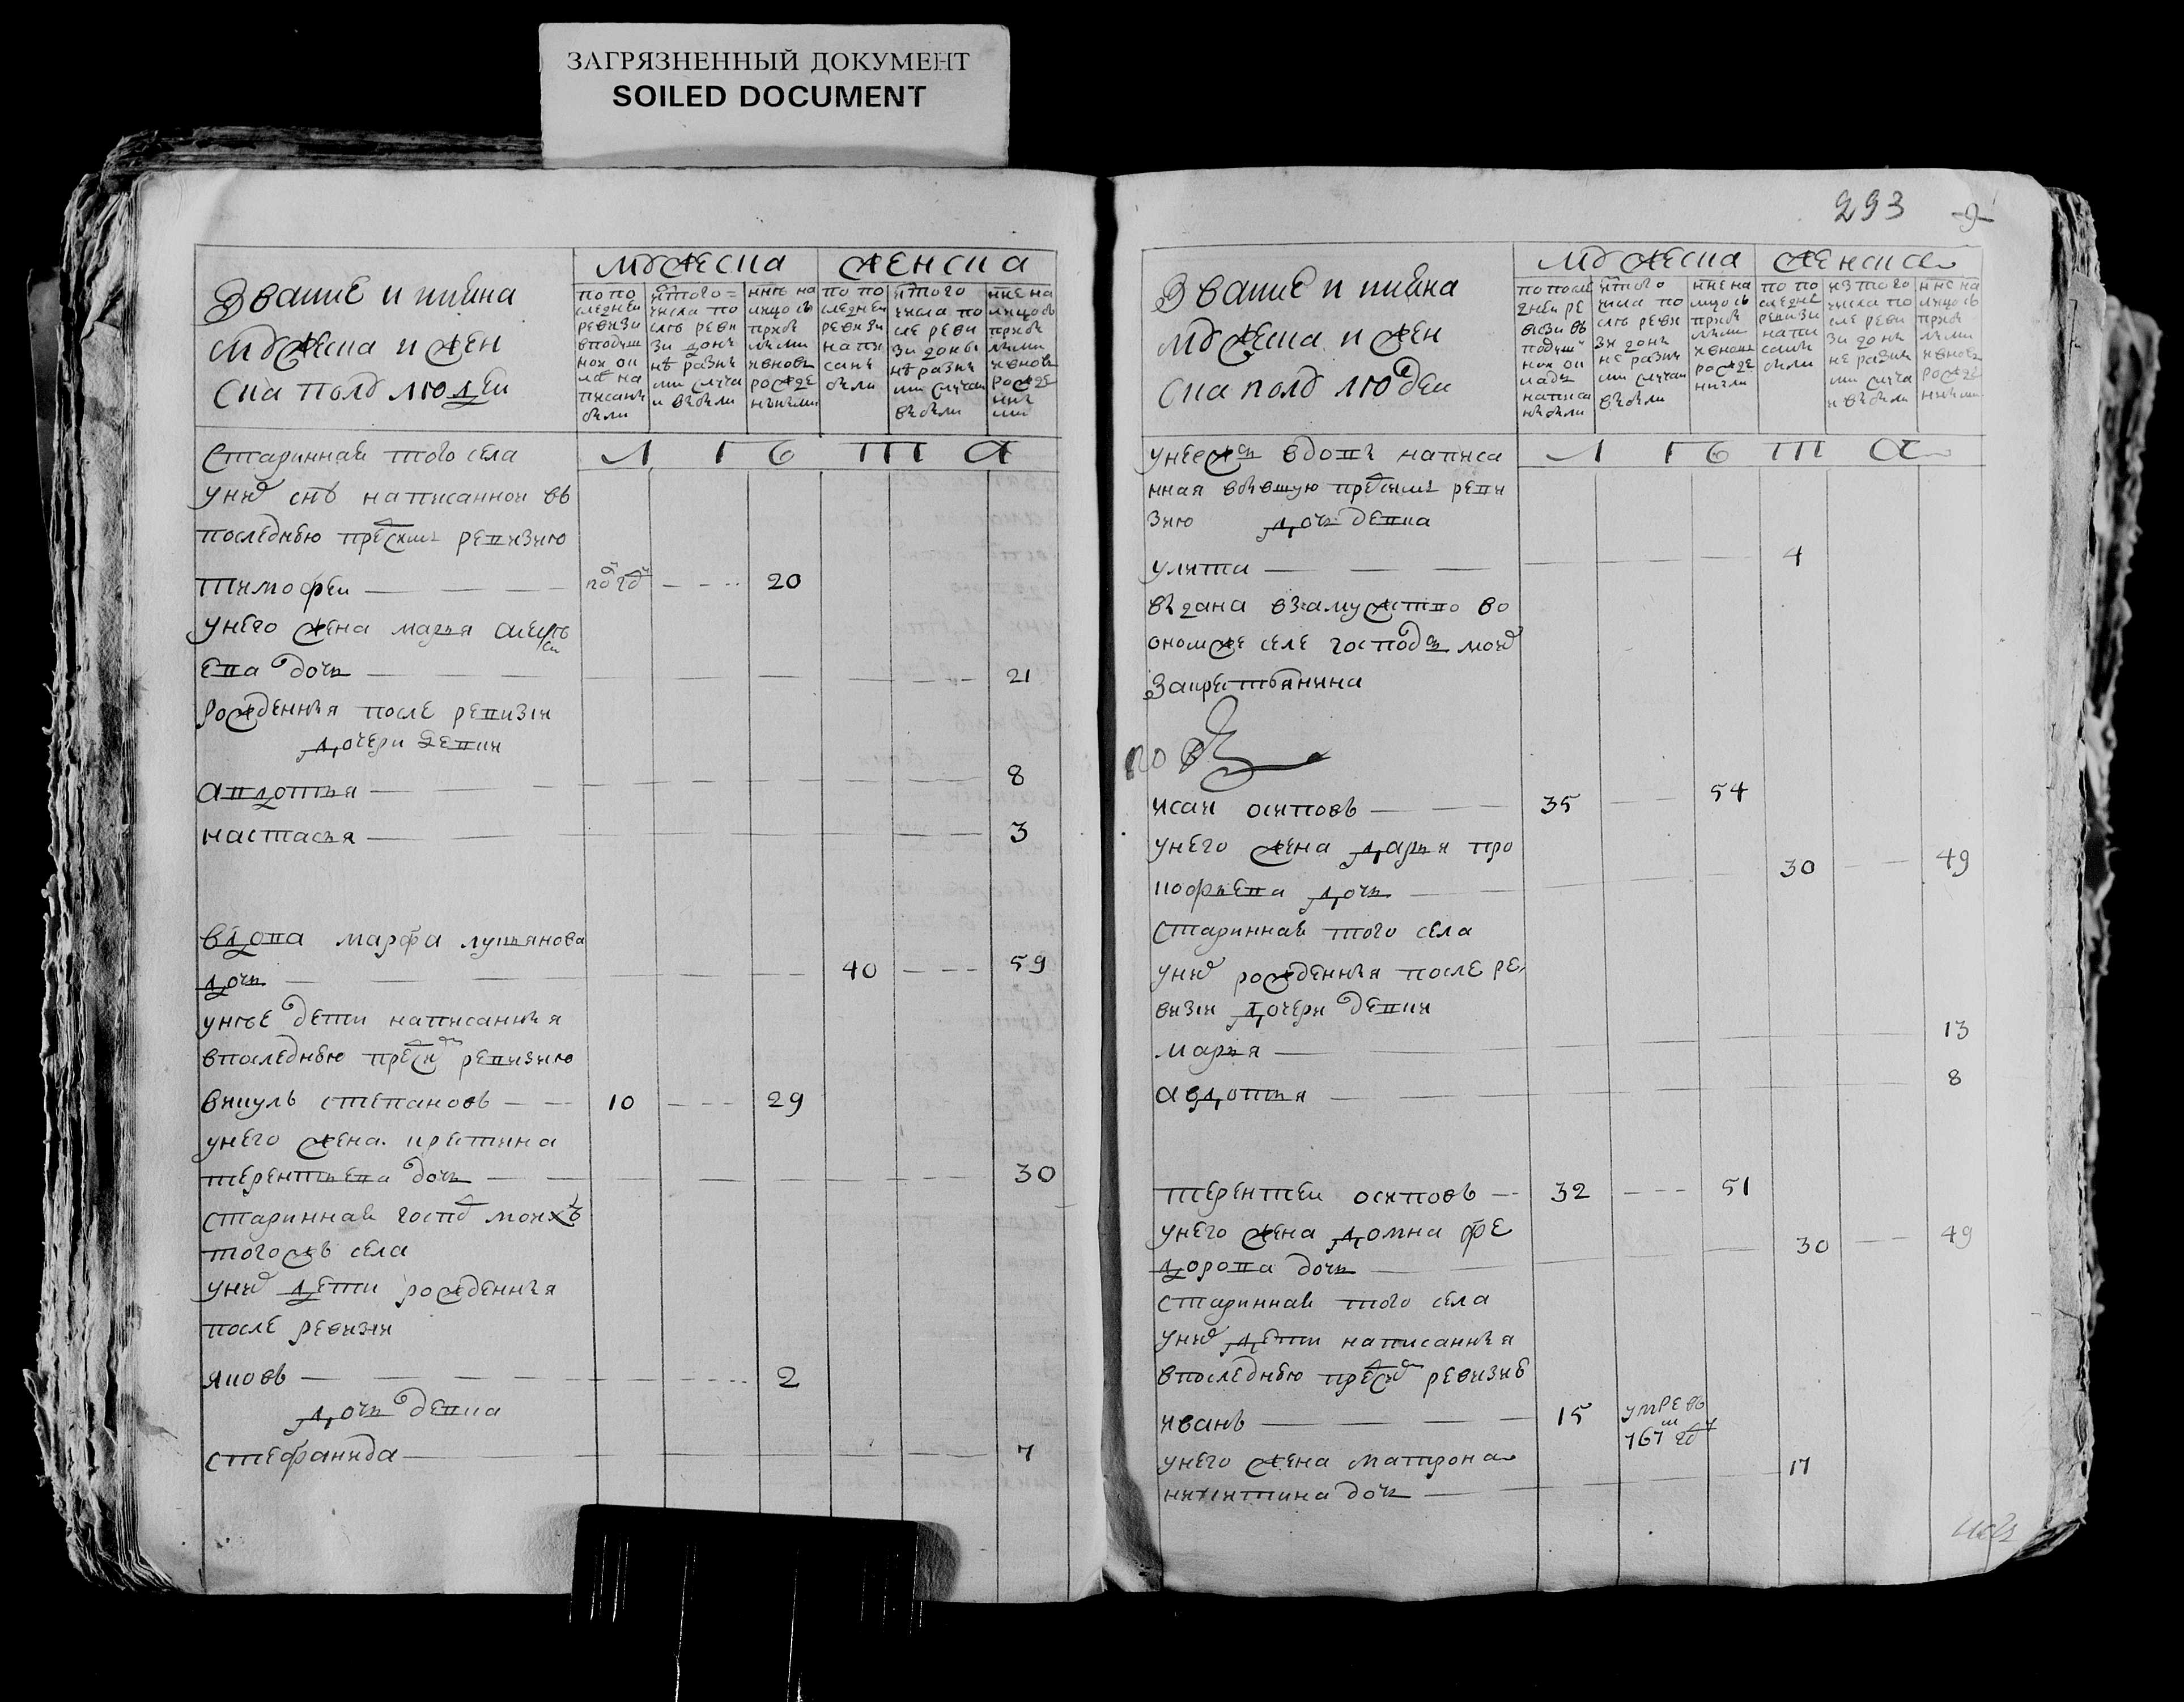 ЗАГРЯЗНЕННЫЙ ДОКУМЕНТ
SOILED DOCUMENT
Звание и имяна
мужеска и жен
ска полу людеи
мужеска
женска
по по
следнеи
ревизи
в подуш
нои ок
ладъ на
писаны
были
ис того
числа по
слѣ реви
зи до нн
нѣ разны
ми случа
и выбыли
ннѣ на
лицо съ
прибы
лыми
и вновь
рожде
нными
по по
следнеи
ревизи
напи
саны
были
ис того
числа по
сле реви
зи до ны
нѣ разны
ми случаи
выбыли
нне на
лицо съ
прибы
лыми
и вновь
рожде
нны
ми
лѣта
стариннаи того села
у них снъ написаннои въ
последнею пред симъ ревизию
тимофеи 20
у него жена марья
ева дочь 21
рожденныя после ревизии
дочери девки
авдотья 8
настасья 3
вдова марфа лукьянова
дочь 40 59
у нѣе дети написанныя
в последнею пред сим ревизию
викулъ степановъ 10 29
у него жена кристина
терентьева дочь 30
стариннаи госпд моихъ
того жъ села
у них дети рожденныя
после ревизии
яковъ 2
дочь девка
стефанида 7
293 9
Звание и имяна
мужеска и жен
ска полу людеи
мужеска
женска
по после
днеи ре
визи въ
подуш
нои ок
ладъ
написа
ны были
ис того
числа по
слѣ реви
зи до нн
не разны
ми случаи
выбыли
нне на
лицо съ
прибы
лыми
и вновь
рожде
нными
по по
следне
ревизи
напи
саны
были
из того
числа по
сле реви
зи до нн
не разны
ми случа
и выбыли
нне на
лицо съ
прибы
лыми
и вновь
рожде
нными
лѣта
у нее ж вдовы написа
нная в бывшую пред симъ реви
зию дочь девка
улита 4
выдана в замужство во
оном же селе господ моих
за крестьянина
исаи осиповъ 35 54
у него жена дарья про
кофьева дочь 30 49
стариннаи того села
у них рожденныя после ре
визии дочери девки
марья 13
авдотья 8
терентеи осиповъ 32 51
у него жена домна фе
дорова дочь 30 49
стариннаи того села
у них дети написанныя
в последнею пред сим ревизию
иванъ 15 умре въ
767 м гд
у него жена матрона
никитина дочь 17